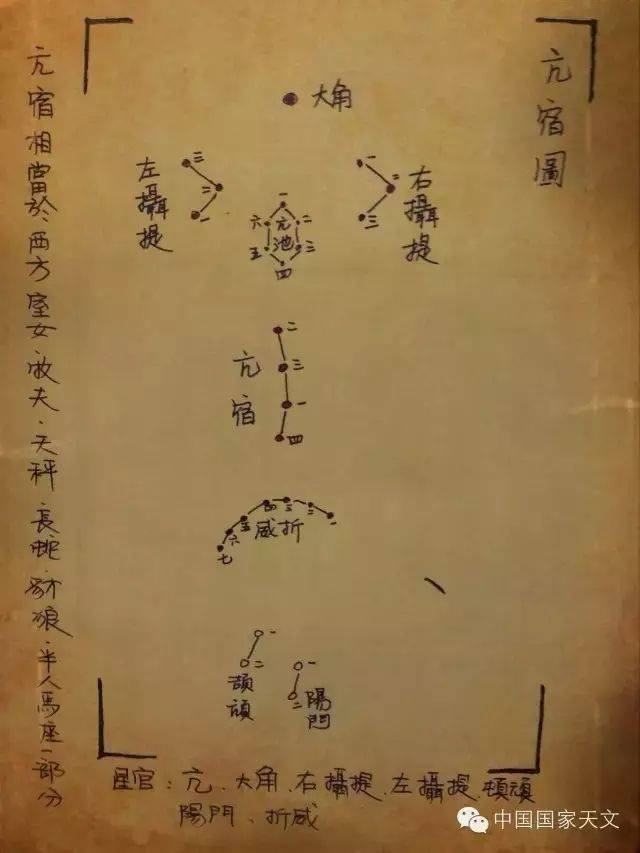 亢宿圖
大角
左攝提
三
二
一
右攝提
一
二
三
亢池
一
二
三
四
五
六
亢宿
二
三
一
四
折威
一
二
三
四
五
六
七
頏
一
二
陽門
一
二
亢宿相當於西方室女·牧夫·天秤·長蛇·豺狼·半人馬座一部分
星官：亢、大角、右攝提、左攝提、頓頑
陽門、折威
中国国家天文